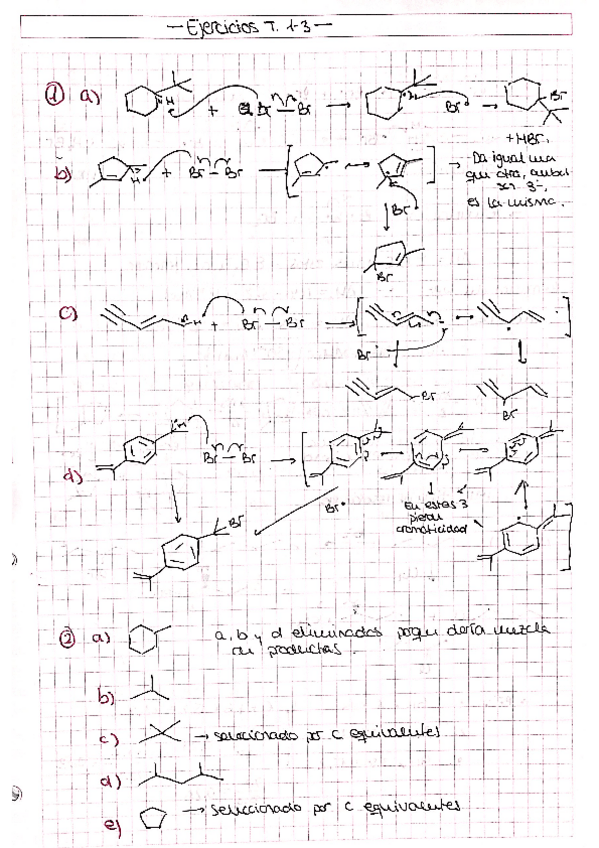 — Ejercicios T. 1-3 —
① a) H + Br — Br → H Br· → Br
+ HBr.
b) H + Br — Br → Da igual una
que otra, ambas
son 3º,
es la misma.
Br·
Br
c) H + Br — Br
Br·
Br Br
d) H Br — Br
Br·
En estas 3
pierdu
aromaticidad
Br
② a) a, b y d eliminados porque daría mezcla
de productos.
b)
c) → seleccionado por C equivalentes
d)
e) → seleccionado por C equivalentes